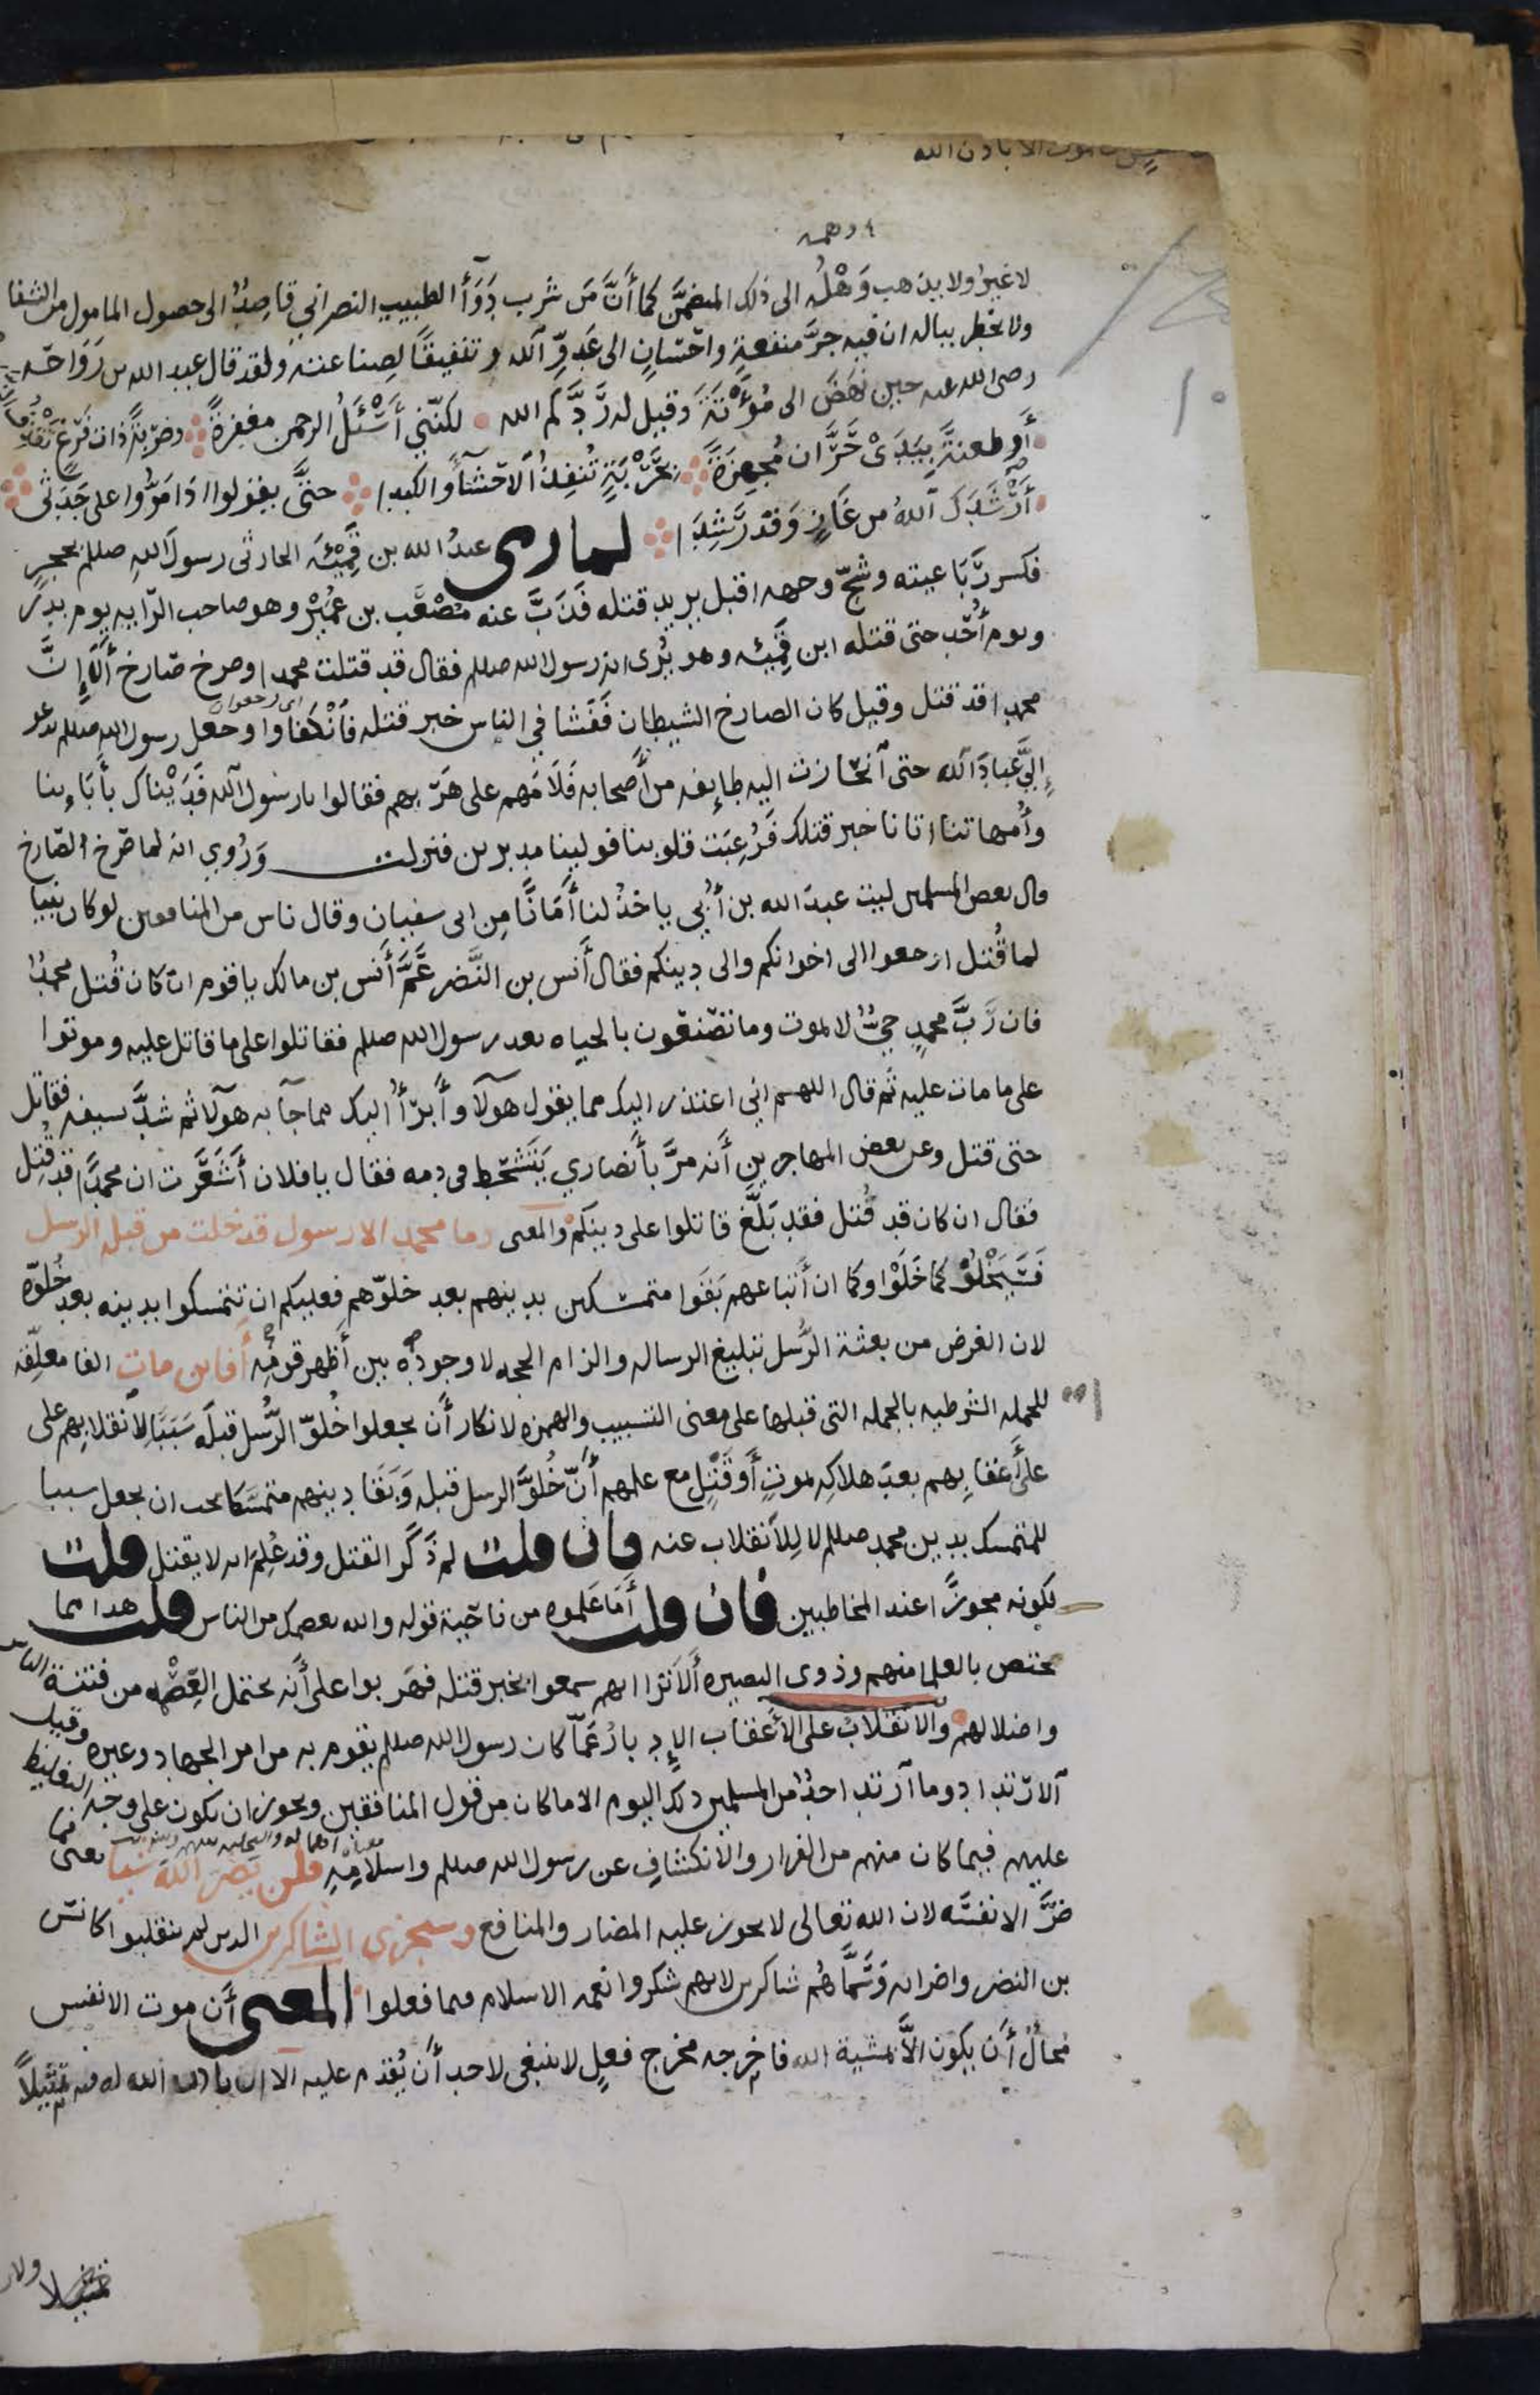 الا باذن الله
وهمه
لا غيرُ ولا يذهب وَهْلُه الى ذلك المتضمَّن كما أَنَّ مَن شرب دَوَأ الطبيب النصراني قاصِدٌ الى حصول المامول من الشفا
ولا يخطر بباله ان فيه جرَّ منفعةٍ واحسانٍ الى عَدوِّ الله وتنفيقًا لصناعته ولقد قال عبد الله بن رَوَاحَه
رضى الله عنه حين نَهَضَ الى مُؤْتَةَ وقيل له رَدَّكم الله لكنّني أَسْئَلُ الرحمن مغفرةً وضربةً ذات فَرْغٍ
أو طعنةً بيَدَىْ حَرَّان مُجهِزَةً بحَرْبَةٍ تُنفِذُ الاحشأَ والكبدا حتىَّ يقولوا اذا مَرُّوا على جَدَثى
أَرْشَدَكَ اللهُ من غَازٍ وَقَدْ رَشِدَا لما رمى عبدُ الله بن قَمِيْئَه الحارثى رسولَ اللهِ صللم بحجرٍ
فكسر رَبَاعيته وشجّ وجهه اقبل يريد قتله فَذَبَّ عنه مُصْعَب بن عُمَيْر وهو صاحب الرّايه يوم بدر
ويوم أُحُدٍ حتى قتله ابن قَمِيئه وهو يُرى انه رسول الله صللم فقال قد قتلت محمدا وصرخ صَارخ أَلَا إِنَّ
محمدا قد قتل وقيل كان الصارخ الشيطان فَفَشا في الناس خبر قتله فَأنْكَفَاوا وجعل رسول الله صللم يدعو
إِلىَّ عِبادَ الله حتى اَنحَازت اليه طايفه من أَصحابه فَلَامَهم على هَرَبهم فقالوا يارسول الله فَدَيْناك بأَبَاينا
وأُمهاتنا اتانا خبر قتلك فَرُعِبَت قلوبنا فولينا مدبرين فنزلت وَرُوِي انه لما صَرخ الصَّارخ
قال بعض المسلمين ليت عبدَ الله بن أُبي ياخذُ لنا أَمَانًا مِن ابى سفيان وقال ناس من المنافقين لو كان نبيا
لما قُتل ارجعوا الى اخوانكم والى دينكم فقال أَنس بن النَّضر عَمّ أَنس بن مالك ياقوم ان كان قُتل محمدٌ
فان رَبَّ محمدٍ حيٌّ لا يموت وما تصْنعون بالحياه بعد رسول الله صللم فقاتلوا على ما قاتل عليه وموتوا
على ما مات عليه ثم قال اللهم اني اعتذر اليك مما يقول هولآ وأَبرَأُ اليك مما جآ به هولآ ثم شدَّ بسيفه فقاتل
حتى قتل وعن بعض المهاجرين أَنه مرَّ بأَنصاري يَتَشَحَّط فى دمه فقال يافلان أَشَعَرت ان محمدًا قد قُتِل
فقال ان كان قد قُتل فقد بَلَّغ قاتلوا على دينكمْ والمعنى وما محمد الا رسول قد خلت من قبله الرسل
فَسَيَخْلُوْ كما خَلَوْا وكما ان أَتباعهم بَقَوا متمسكين بدينهم بعد خلوّهم فعليكم ان تتمسكوا بدينه بعد خُلوّه
لان الغرض من بعثة الرُّسل تبليغ الرساله والزام الحجه لا وجودُه بين أَظهر قومِه أَفاين مات الفا معلّقه
للجمله الشرطيه بالجمله التى قبلها على معنى التسبيب والهمزه لانكار أَن يجعلوا خُلوّ الرُّسل قبلَه سَبَبًا لانقلابهم على
على أَعقابِهم بعدَ هلاكه بموتٍ أَو قَتلٍ مع علمهم أَنّ خُلوَّ الرسل قبله وَبَقَا دينهم متمسَّكا يجب ان يجعل سببا
للتمسك بدين محمد صللم لا للاَنقلاب عنه فان قلت لم ذَكَر القتل وقد عُلِمَ انه لا يقتل قلت
لكونه مجوزًا عند المخاطبين فان قلت أَمَا عَلموه من ناحَية قوله والله يعصمك من الناس قلت هذا مما
يختص بالعلما منهم وذوى البصيره أَلا ترا انهم سمعوا بخبر قتله فهَربوا على أَنه يحتمل العِصْمه من فتنة الناس
واضلالهم والانقلابُ على الاَعقاب الإدبارُ عَمّا كان رسول الله صللم يقوم به من امر الجهاد وغيره وقيل
الارتداد وما اَرتد احدٌ من المسلمين ذلك اليوم الا ما كان من قول المنافقين ويجوز ان يكون على وجه التغليظ
عليهم فيما كان منهم من الفرار والانكشافِ عن رسول الله صللم واسلامِهِ فلن يضر الله شيئا يعنى فما
ضَرَّ الا نفسَه لان الله تعالى لا يجوز عليه المضار والمنافع وسيجزى الشاكرين الذين لم ينقلبوا كانَس
بن النضر واضرابه وَسَمَّاهُم شاكرين لانهم شكروا نعمه الاسلام فيما فعلوا المعنى أَن موت الانفس
محالٌ أَن يكون الاَّ بمشية الله فاخرجه مخرج فعلٍ لا ينبغى لاحد أَن يُقدم عليه الا ان ياذن الله له فيه تمثيلاً
تمثيلا ولان